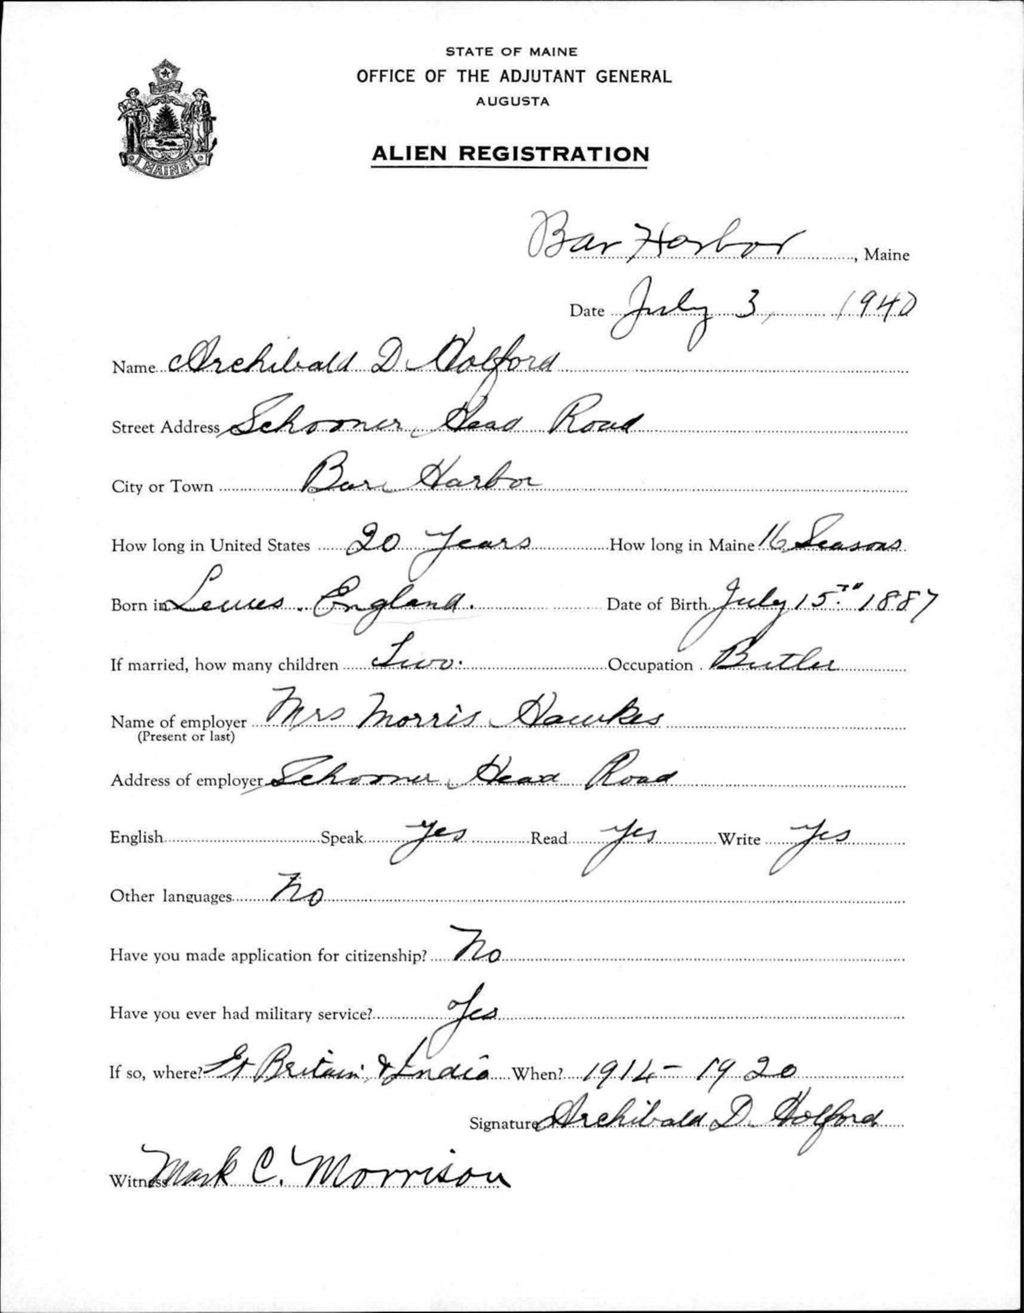 STATE OF MAINE
OFFICE OF THE ADJUTANT GENERAL
AUGUSTA
MAINE
ALIEN REGISTRATION
Bar Harbor, Maine
Date July 3, 1940
Name Archibald D. Holford
Street Address Schooner Head Road
City or Town Bar Harbor
How long in United States 20 years How long in Maine 16 Seasons
Born in Lewes. England. Date of Birth July 15th 1887
If married, how many children Two. Occupation Butler
Name of employer Mrs Morris Hawkes
(Present or last)
Address of employer Schooner Head Road
English Speak yes Read yes Write yes
Other languages No
Have you made application for citizenship? No
Have you ever had military service? Yes
If so, where? Gt Britain & India When? 1914 - 1920
Signature Archibald D. Holford
Witness Mark C. Morrison